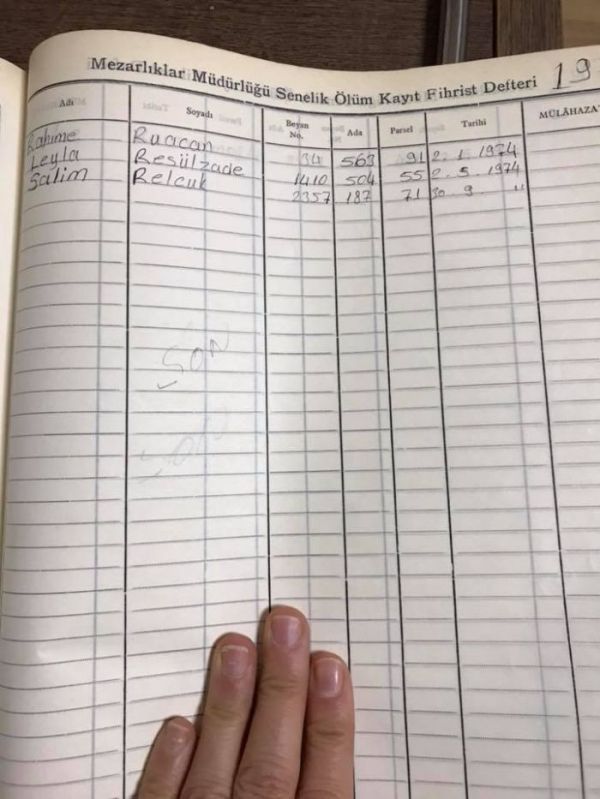 Mezarlıklar Müdürlüğü Senelik Ölüm Kayıt Fihrist Defteri 19
Adı Soyadı Beyan No. Ada Parsel Tarihi MÜLÂHAZA
Rahime Ruacan 34 563 91 2.1.1974
Leyla Resülzade 1410 504 55 2.5.1974
Salim Relcuk 2357 187 71 30 9 "
SON
SON